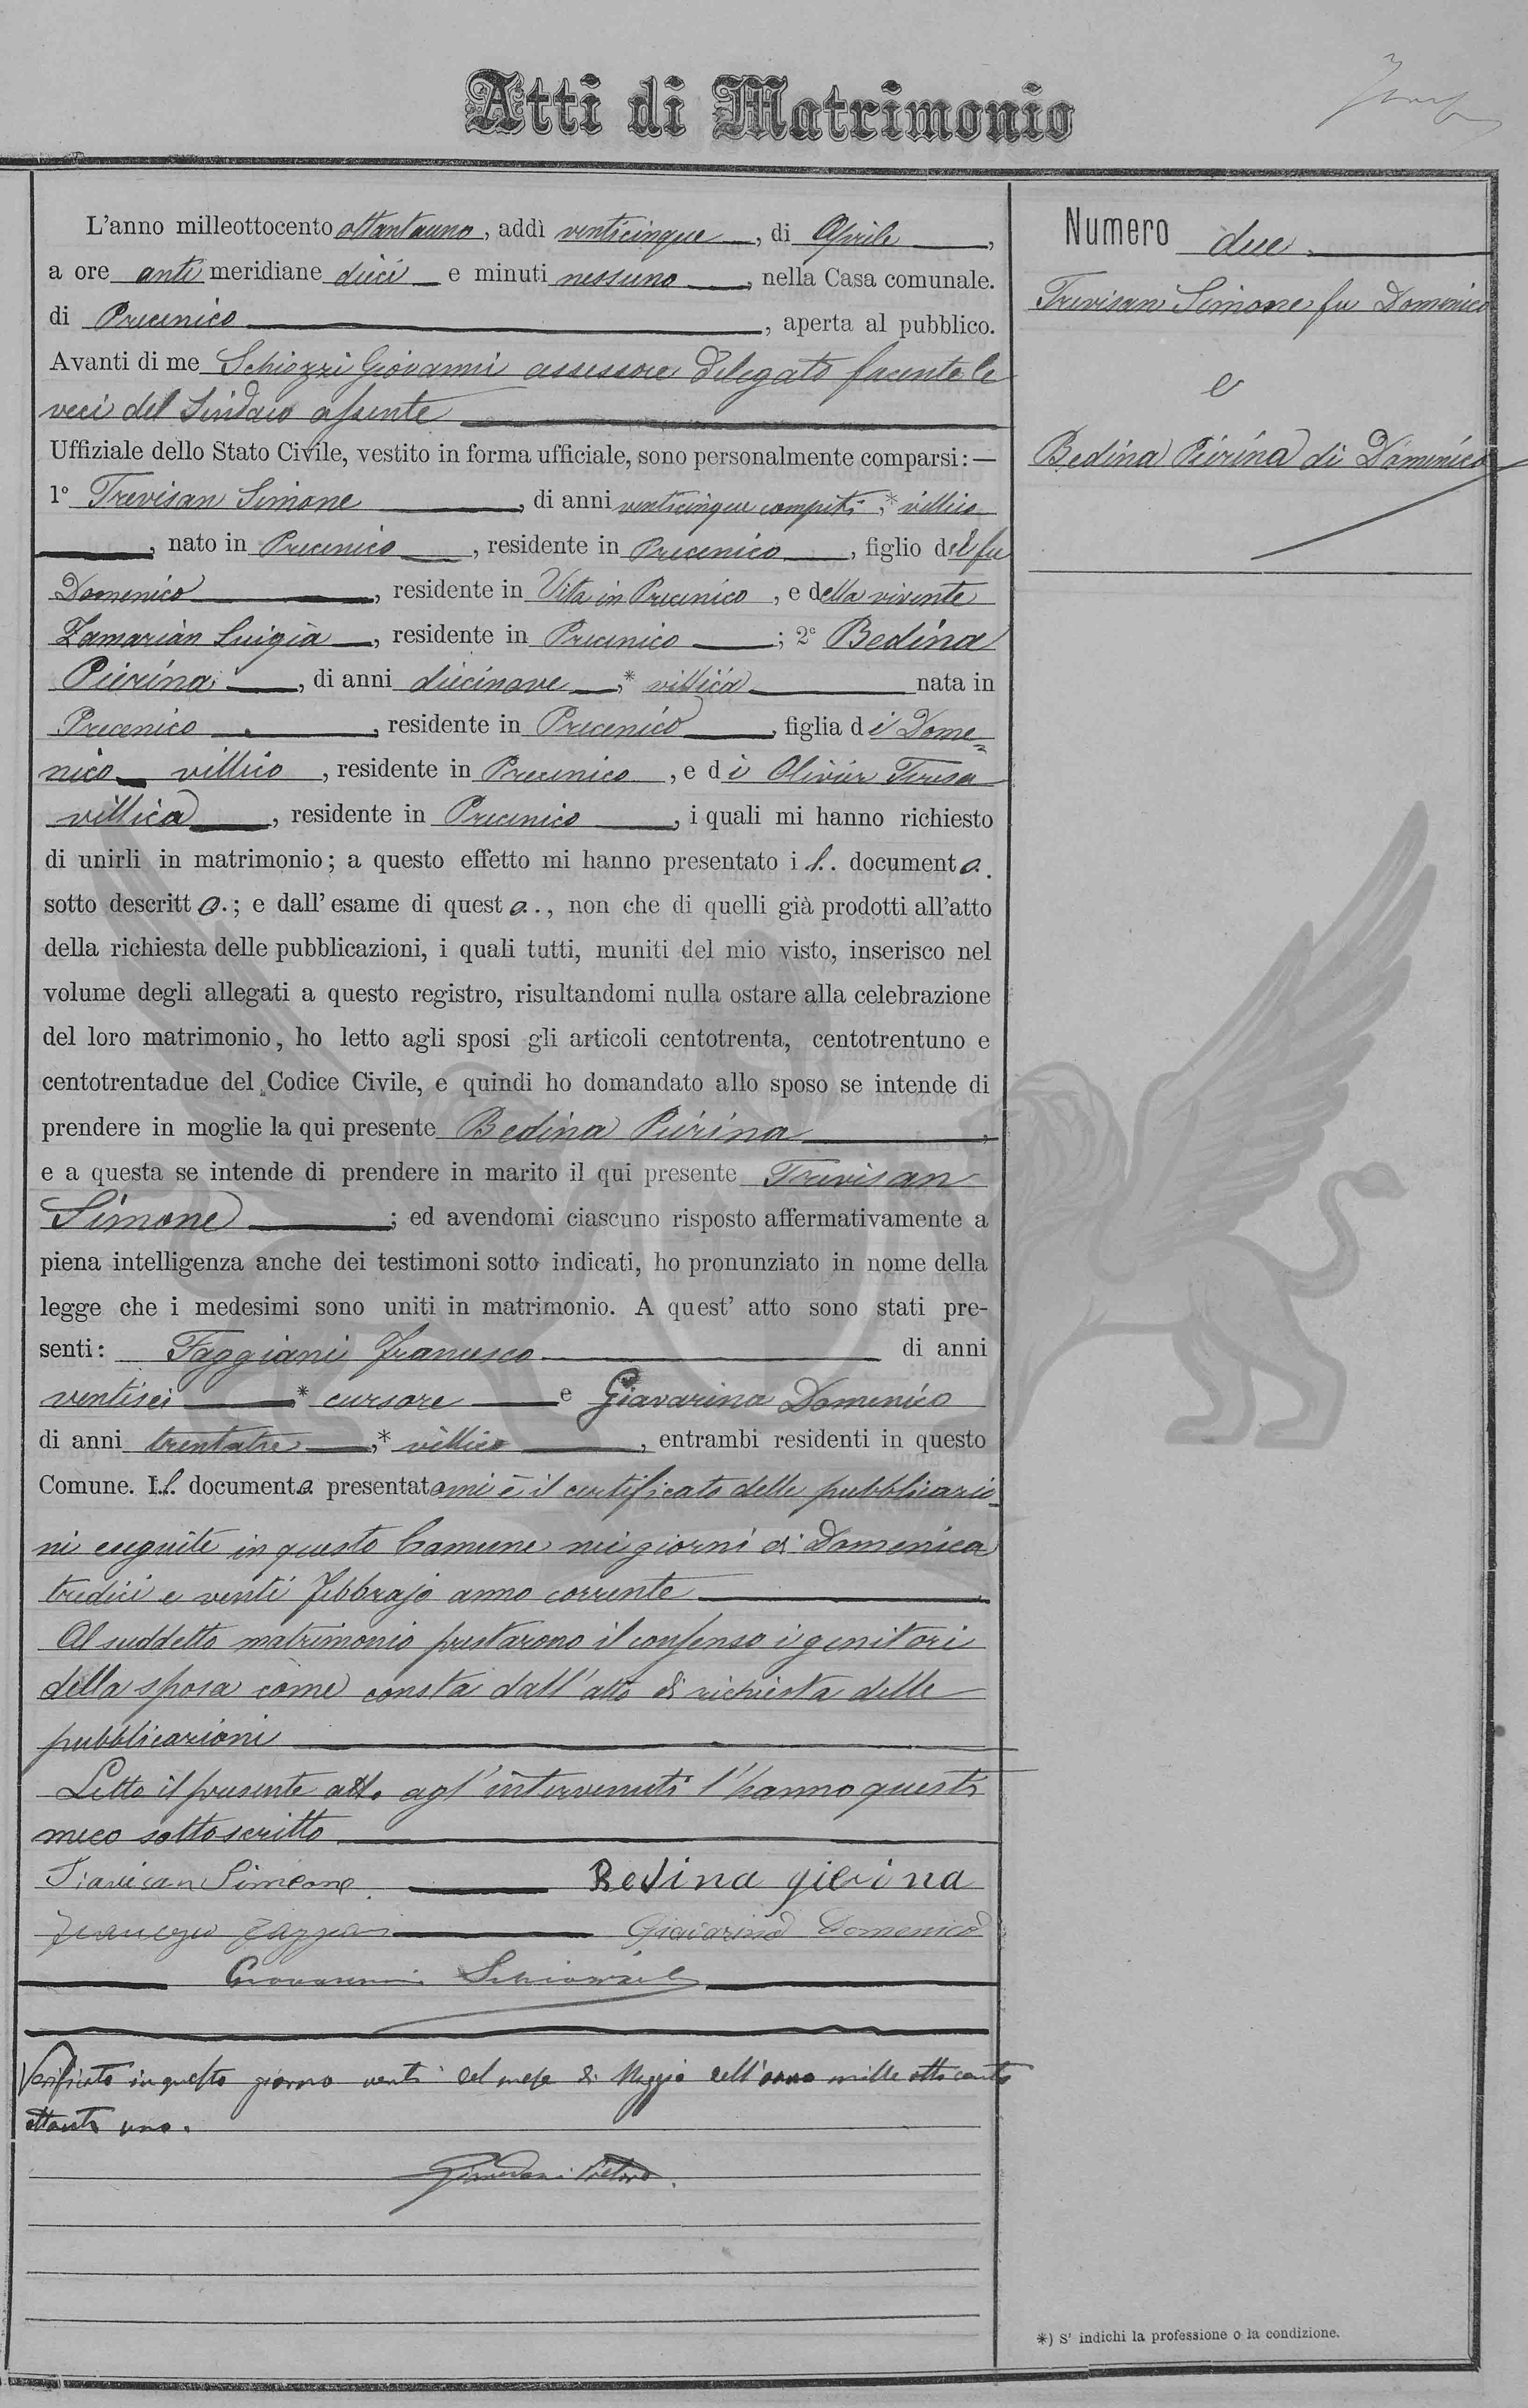 Atti di Matrimonio
L'anno milleottocento ottantauno, addì venticinque, di Aprile,
a ore anti meridiane dieci e minuti nessuno, nella Casa comunale.
di Precenico, aperta al pubblico.
Avanti di me Schiozzi Giovanni assessore delegato facente le
veci del Sindaco assente
Uffiziale dello Stato Civile, vestito in forma ufficiale, sono personalmente comparsi: —
1° Trevisan Simone, di anni venticinque compiti,* villico
, nato in Precenico, residente in Precenico, figlio del fu
Domenico, residente in Vita in Precenico, e della vivente
Zamarian Luigia, residente in Precenico; 2ª Bedina
Pierina, di anni diecinove,* villica nata in
Precenico, residente in Precenico, figlia di Dome=
nico villico, residente in Precenico, e di Olivier Teresa
villica, residente in Precenico, i quali mi hanno richiesto
di unirli in matrimonio; a questo effetto mi hanno presentato il. documento.
sotto descritto.; e dall' esame di questo., non che di quelli già prodotti all'atto
della richiesta delle pubblicazioni, i quali tutti, muniti del mio visto, inserisco nel
volume degli allegati a questo registro, risultandomi nulla ostare alla celebrazione
del loro matrimonio, ho letto agli sposi gli articoli centotrenta, centotrentuno e
centotrentadue del Codice Civile, e quindi ho domandato allo sposo se intende di
prendere in moglie la qui presente Bedina Pierina,
e a questa se intende di prendere in marito il qui presente Trevisan
Simone; ed avendomi ciascuno risposto affermativamente a
piena intelligenza anche dei testimoni sotto indicati, ho pronunziato in nome della
legge che i medesimi sono uniti in matrimonio. A quest' atto sono stati pre-
senti: Faggiani Francesco di anni
ventisei * cursore e Giavarina Domenico
di anni trentatre,* villico, entrambi residenti in questo
Comune. Il. documento presentatomi è il certificato delle pubblicazio=
ni eseguite in questo Comune nei giorni di Domenica
tredici e venti Febbrajo anno corrente
Al suddetto matrimonio prestarono il consenso i genitori
della sposa come consta dall'atto di richiesta delle
pubblicazioni
Letto il presente atto agl'intervenuti l'hanno questi
meco sottoscritto
Travisan Simeone Bedina gierina
Francesco Faggiani Giavarina Domenico
Giovanni Schiozzi
Verificato in questo giorno venti del mese di Maggio dell'anno mille ottocento
ottanta uno.
Numero due
Trevisan Simone fu Domenico
e
Bedina Pierina di Domenico
*) S' indichi la professione o la condizione.